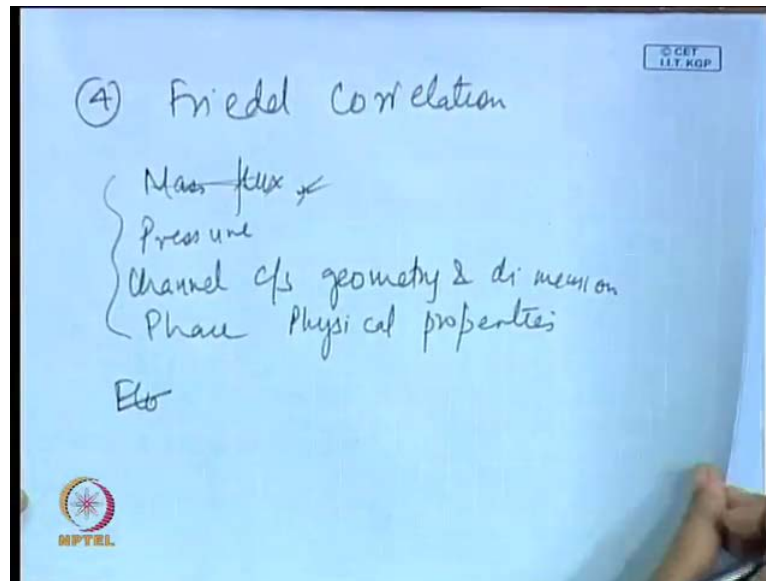 © CET
I.I.T. KGP
④ Friedel Correlation
Mass flux
Pressure
Channel c/s geometry & dimension
Phase Physical properties
NPTEL